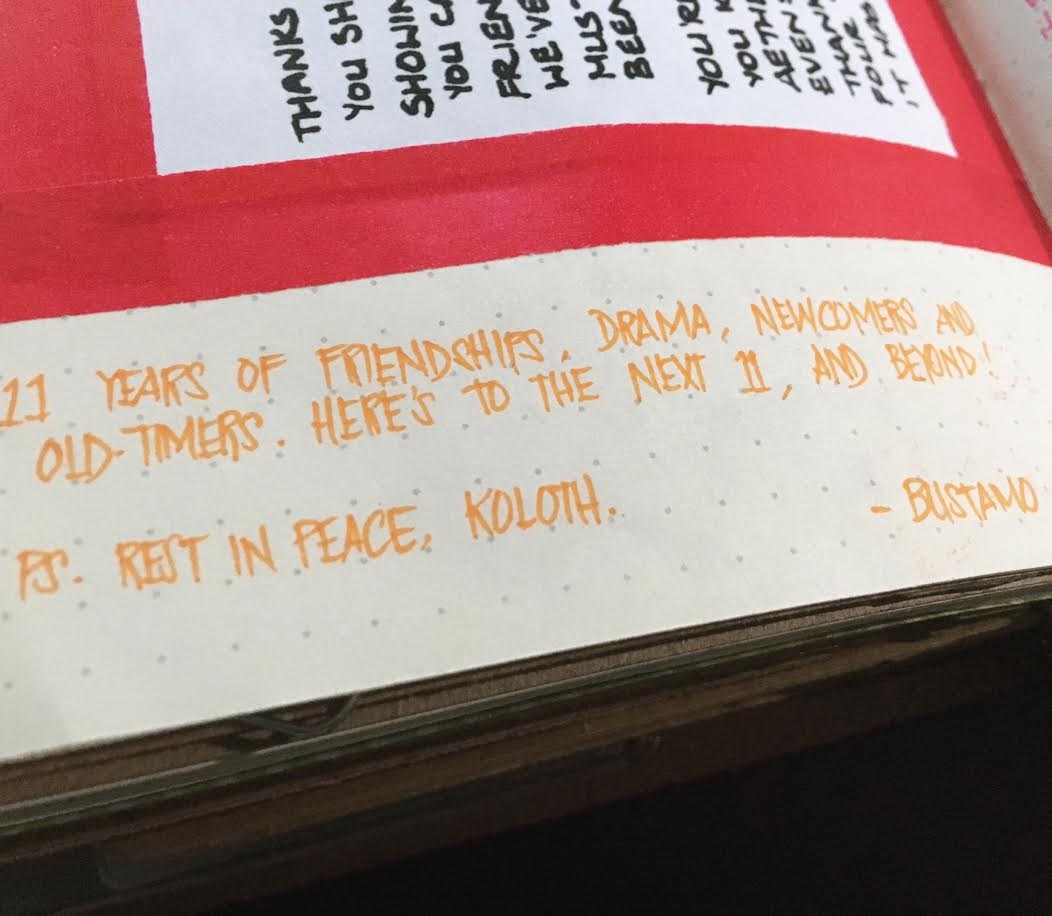 THANKS
YOU SH
SHOWIN
YOU CA
FRIEN
WE'VE
MUST
BEEN
YOU RE
YOU K
AETHE
EVEN
THAN
FOUR
IT HAS
11 YEARS OF FRIENDSHIPS, DRAMA, NEWCOMERS AND
OLD-TIMERS. HERE'S TO THE NEXT 11, AND BEYOND!
PS. REST IN PEACE, KOLOTH.
- BUSTAMO